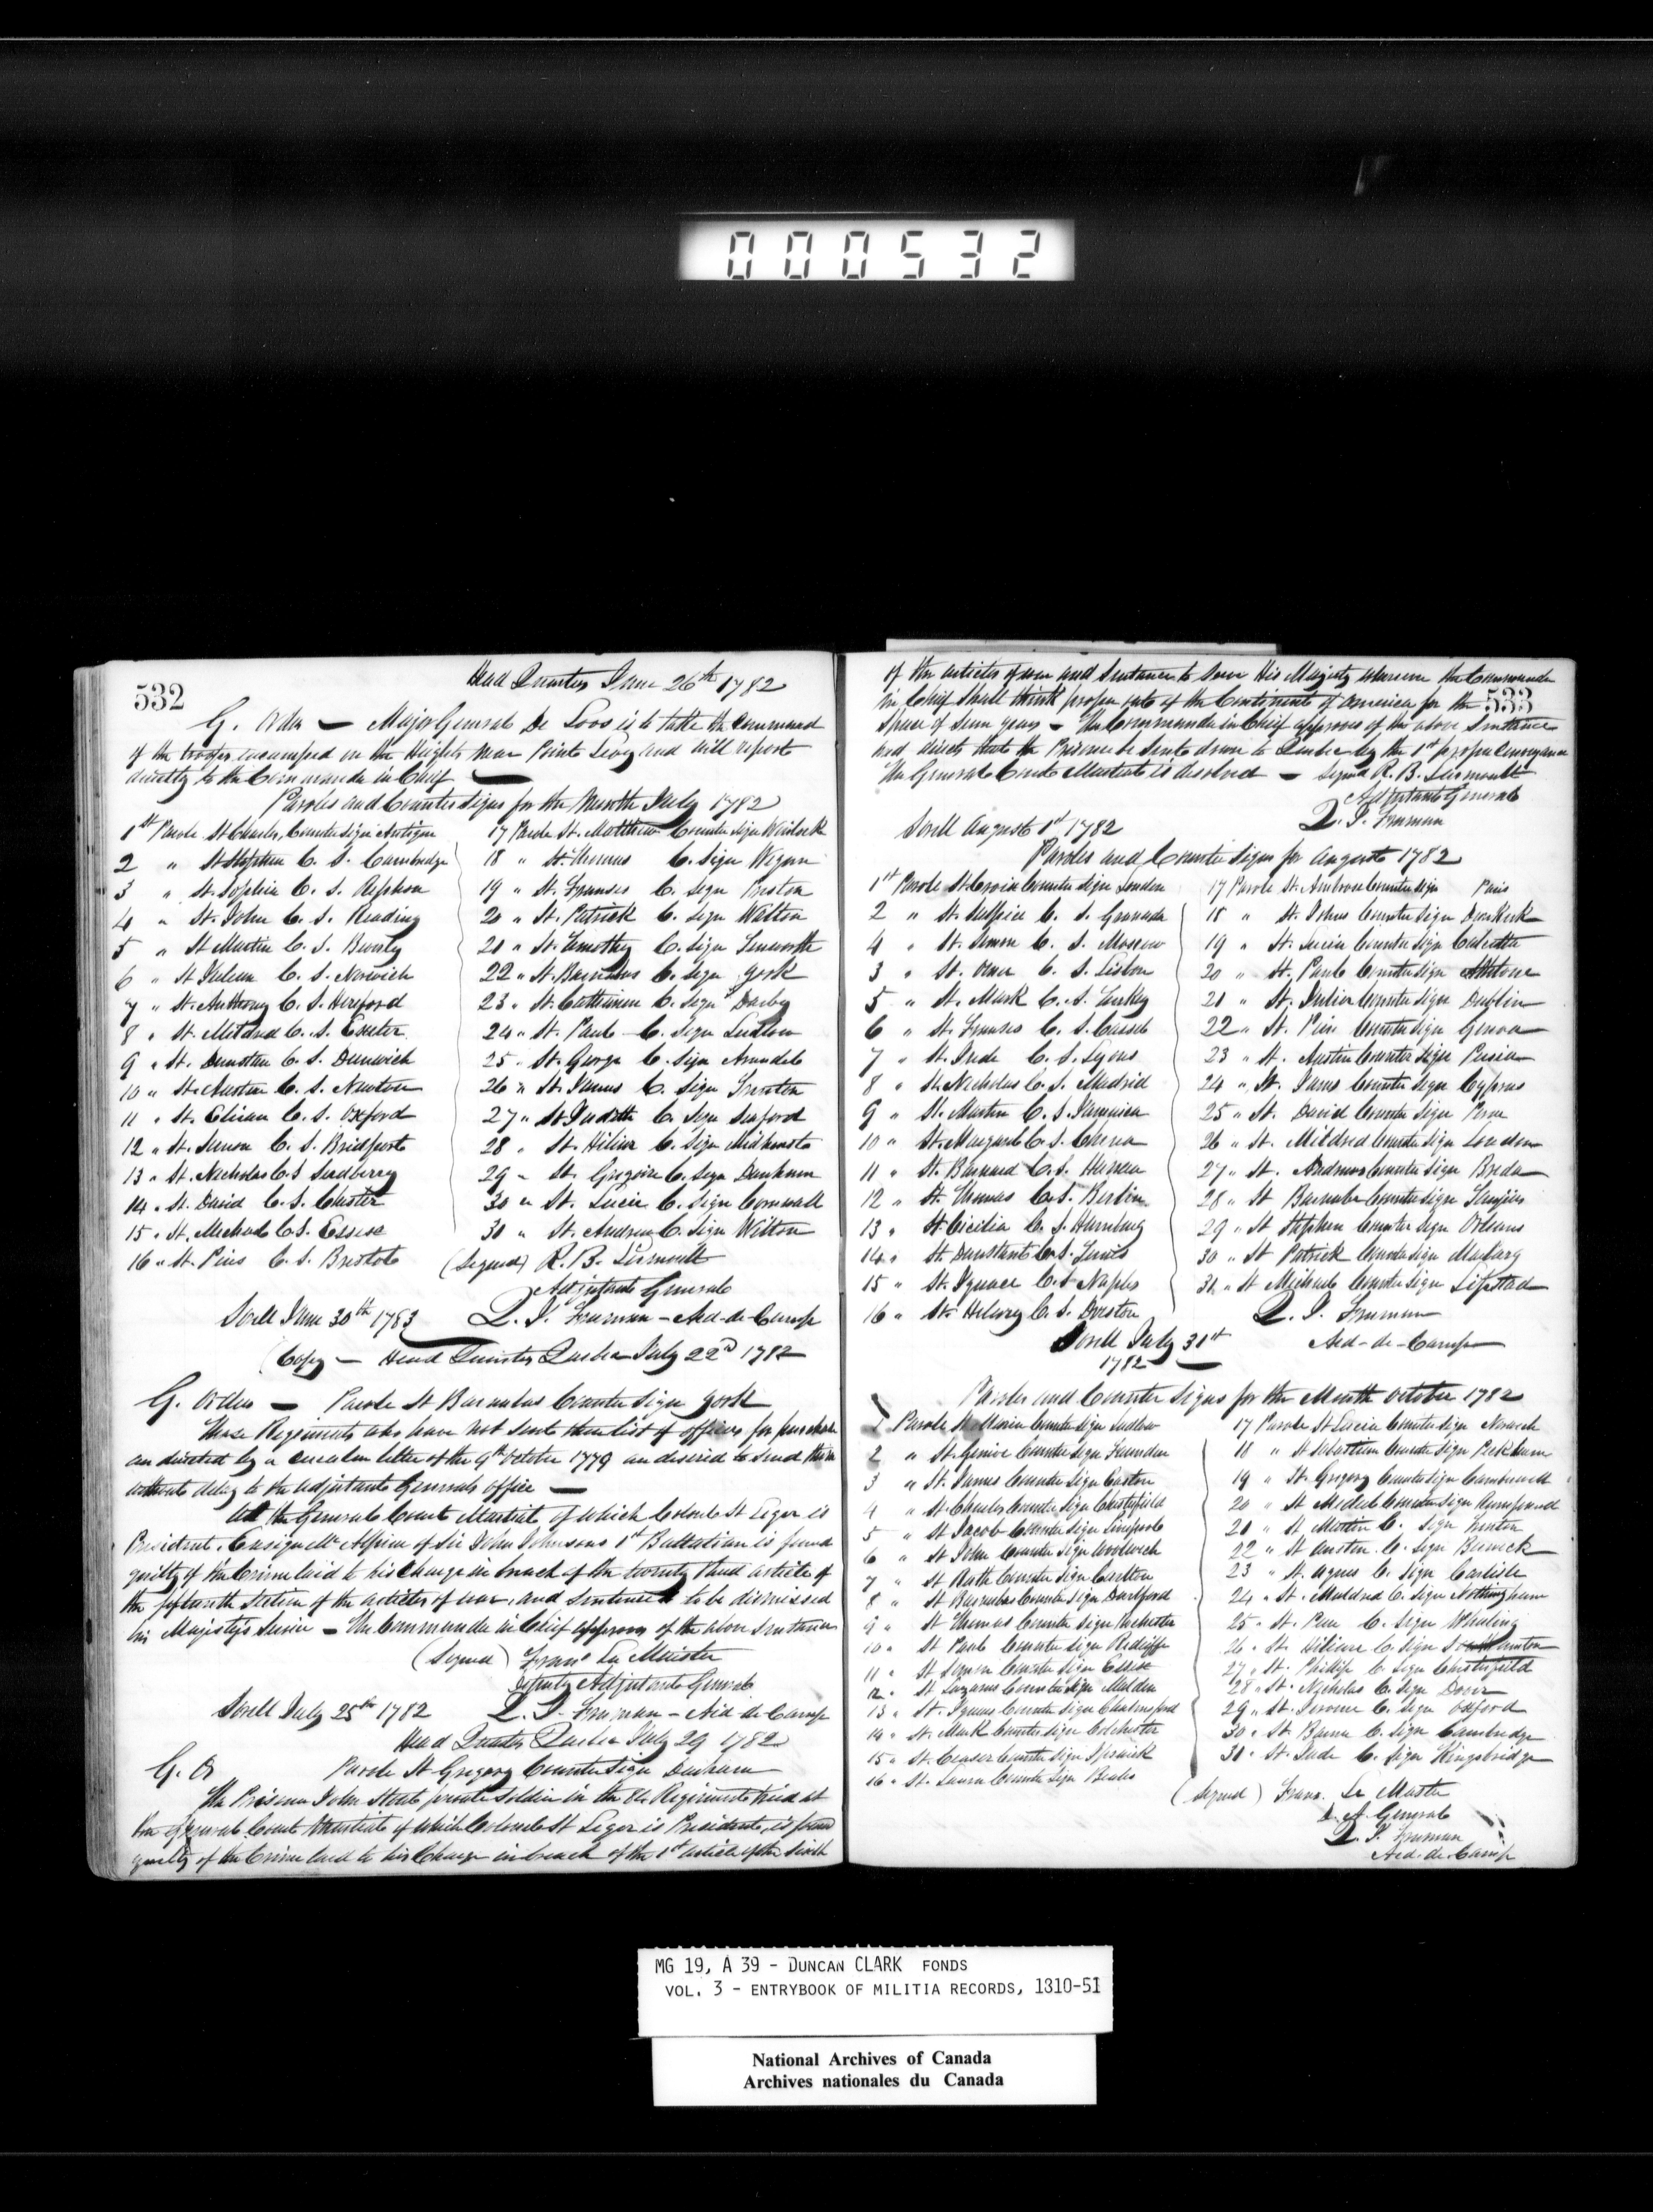 000532
532
Head Quarters June 26th 1782
G. Order — Major General De Loos is to take the Command
of the troops encamped on the Heights near Point Levy and will report
directly to the Commander in Chief —
Paroles and Counter Signs for the Month July 1782
1st Parole St Charles, Counter Sign Antigua
2 " St Stephen C. S. Cambridge
3 " St. Sophia C. S.
4 " St. John C. S. Reading
5 " St Martin C. S. Beverly
6 " St C. S. Norwich
7 " St. Anthony C. S. Hereford
8 " St. Mildred C. S. Exeter
9 " St. Dunstan C. S. Dunwich
10 " St. Austin C. S. Newton
11 " St. C. S. Oxford
12 " St. Simon C. S. Bridport
13 " St. Nicholas C. S Sudberry
14 " St. David C. S. Chester
15 " St. Michael C. S. Essex
16 " St. Pius C. S. Bristol
17 Parole St. Matthew Counter Sign
18 " St. Thomas C. Sign Wigan
19 " St. Franses C. Sign Preston
20 " St. Patrick C. Sign Walton
20 " St. Timothy C. Sign
22 " St. Barnabas C. Sign York
23 " St. Catharine C. Sign Darby
24 " St. Paul C. Sign Ludlow
25 " St. George C. Sign Arundel
26 " St. James C. Sign
27 " St Judith C. Sign Seaford
28 " St. C. Sign Midhurst
29 " St. Gregoire C. Sign Dunham
30 " St. Lucia C. Sign Cornwall
30 " St. Andrew C. Sign Wilton
(Signed) R. B. Lernoult
Adjutant General
Sorell June 30th 1783 L. J. Fruman – Aid-de-Camp
(Copy — Head Quarters Quebec July 22d 1782
G. Orders — Parole St Barnabas Counter Sign York
Those Regiments who have not sent their list of officers for purchase
as directed by a circular letter of the 9th October 1779 are desired to send them
without delay to the adjutant Generals office —
At the General Court Martial of which Colonel St Leger is
President. Ensign Mc Alpine of Sir John Johnsons 1st Battalion is found
guilty of the Crime laid to his Charge in breach of the twenty third article of
the fifteenth Section of the articles of war, and Sentenced to be dismissed
his Majestys Service – The Commander in Chief approves of the above Sentence
(Signed) Frans Le Maistre
Deputy Adjutant General
Sorell July 25th 1782 L. J. Fruman – Aid-de-Camp
Head Quarters Quebec July 29 1782
G. O Parole St Gregory Counter Sign Dunham
The Prisoner John Stout private Soldier in the 84 Regiment tried at
the General Court Martial of which Colonel St Leger is President, is found
guilty of the Crime laid to his Charge in breach of the 1st article of the Sixth
533
of the articles of war and Sentence to Serve His Majesty wherever the Commander
in Chief Shall think proper out of the Continent of America for the
Space of Seven years – The Commander in Chief approves of the above Sentence
and directs that the Prisoner be Sent down to Quebec by the 1st proper Conveyance
The General Court Martial is dissolved — Signed R. B. Lernoult
Adjutant General
Sorell August 1st 1782 L. J. Fruman
Paroles and Counter Signs for August 1782
1st Parole St Croix Counter Sign London
2 " St. Sulpice C. S. Granada
4 " St. Simon C. S. Moscow
3 " St. Omer C. S. Lisbon
5 " St. Mark C. S. Turkey
6 " St. Franses C. S. Cassel
7 " St. Jude C. S. Lyons
8 " St. Nicholas C. S. Madrid
9 " St. Martin C. S. Jamaica
10 " St. Margaret C. S. China
11 " St. Barnard C. S.
12 " St. Thomas C. S. Berlin
13 " St Cicilia C. S. Hamburg
14 " St. Dunstant C. S. Tunis
15 " St. Ignace C. S Naples
16 " St. C. S.
17 Parole St. Ambrose Counter Sign Paris
18 " St. Johns Counter Sign Dunkirk
19 " St. Lucia Counter Sign Calcutta
20 " St. Paul Counter Sign
21 " St. Counter Sign Dublin
22 " St. Pius Counter Sign Genoa
23 " St. Austin Counter Sign Persia
24 " St. James Counter Sign Cyprus
25 " St. David Counter Sign
26 " St. Mildred Counter Sign London
27 " St. Andrew Counter Sign Breda
28 " St Barnabas Counter Sign Tangiers
29 " St Stephen Counter Sign Orleans
30 " St Patrick Counter Sign
31 " St Michael Counter Sign
L. J. Fruman
Aid-de-Camp
Sorell July 31st
1782 —
Paroles and Counter Signs for the Month October 1782
1 Parole St Maria Counter Sign Ludlow
2 " St. Counter Sign
3 " St. James Counter Sign Caston
4 " St. Charles Counter Sign Chesterfield
5 " St Jacob Counter Sign Liverpool
6 " St John Counter Sign Woolwich
7 " St Ruth Counter Sign Carlton
8 " St Barnabas Counter Sign Dartford
9 " St Thomas Counter Sign
10 " St Paul Counter Sign
11 " St Simon Counter Sign Essex
12 " St Lazarus Counter Sign Malden
13 " St. Ignace Counter Sign Chelmsford
14 " St. Mark Counter Sign Colchester
15 " St. Ceaser Counter Sign Ipswick
16 " St. Laura Counter Sign
17 Parole St Lucia Counter Sign
18 " St Sebastian Counter Sign Peckham
19 " St. Gregory Counter Sign Camberwell
20 " St Counter Sign
21 " St Martin C. Sign
22 " St Austen C. Sign Berwick
23 " St. Agnes C. Sign Carlisle
24 " St. Mildred C. Sign Nottingham
25 " St. C. Sign
26 " St. C. Sign
27 " St. Phillip C. Sign Chesterfield
28 " St. Nicholas C. Sign Dover
29 " St. Jerome C. Sign Oxford
30 " St. C. Sign Cambridge
31 " St. Jude C. Sign Kingsbridge
(Signed) Frans. Le Mastre
D. A. General
L. J. Fruman
Aid. de. Camp
MG 19, A 39 - DUNCAN CLARK FONDS
VOL. 3 - ENTRYBOOK OF MILITIA RECORDS, 1810-51
National Archives of Canada
Archives nationales du Canada